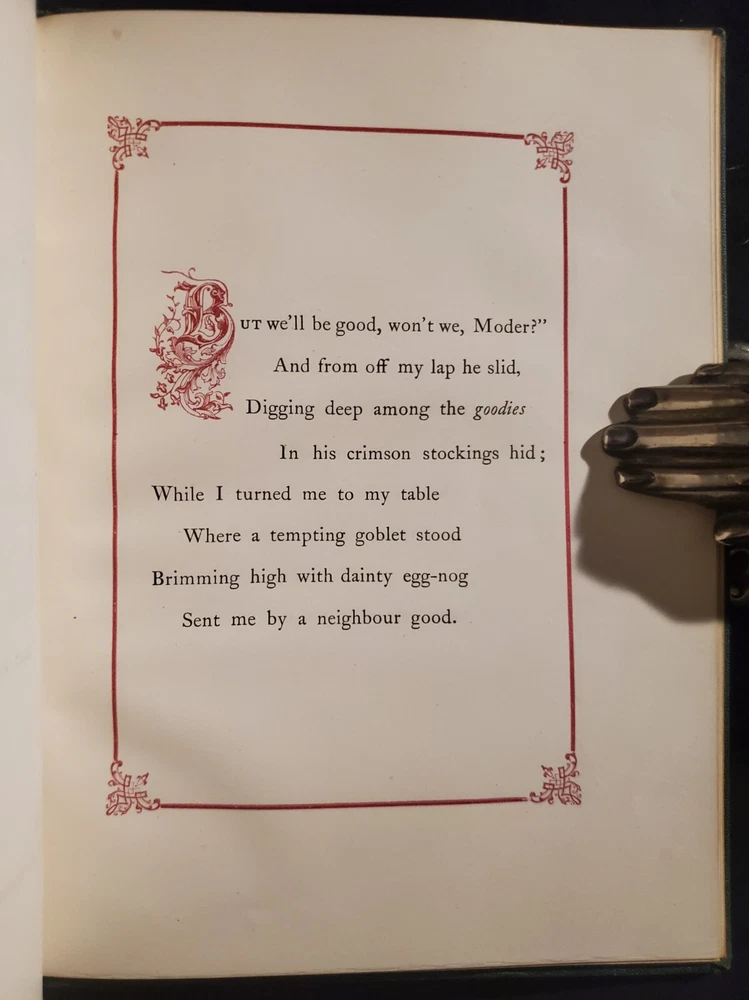 BUT we'll be good, won't we, Moder?”
And from off my lap he slid,
Digging deep among the goodies
In his crimson stockings hid;
While I turned me to my table
Where a tempting goblet stood
Brimming high with dainty egg-nog
Sent me by a neighbour good.